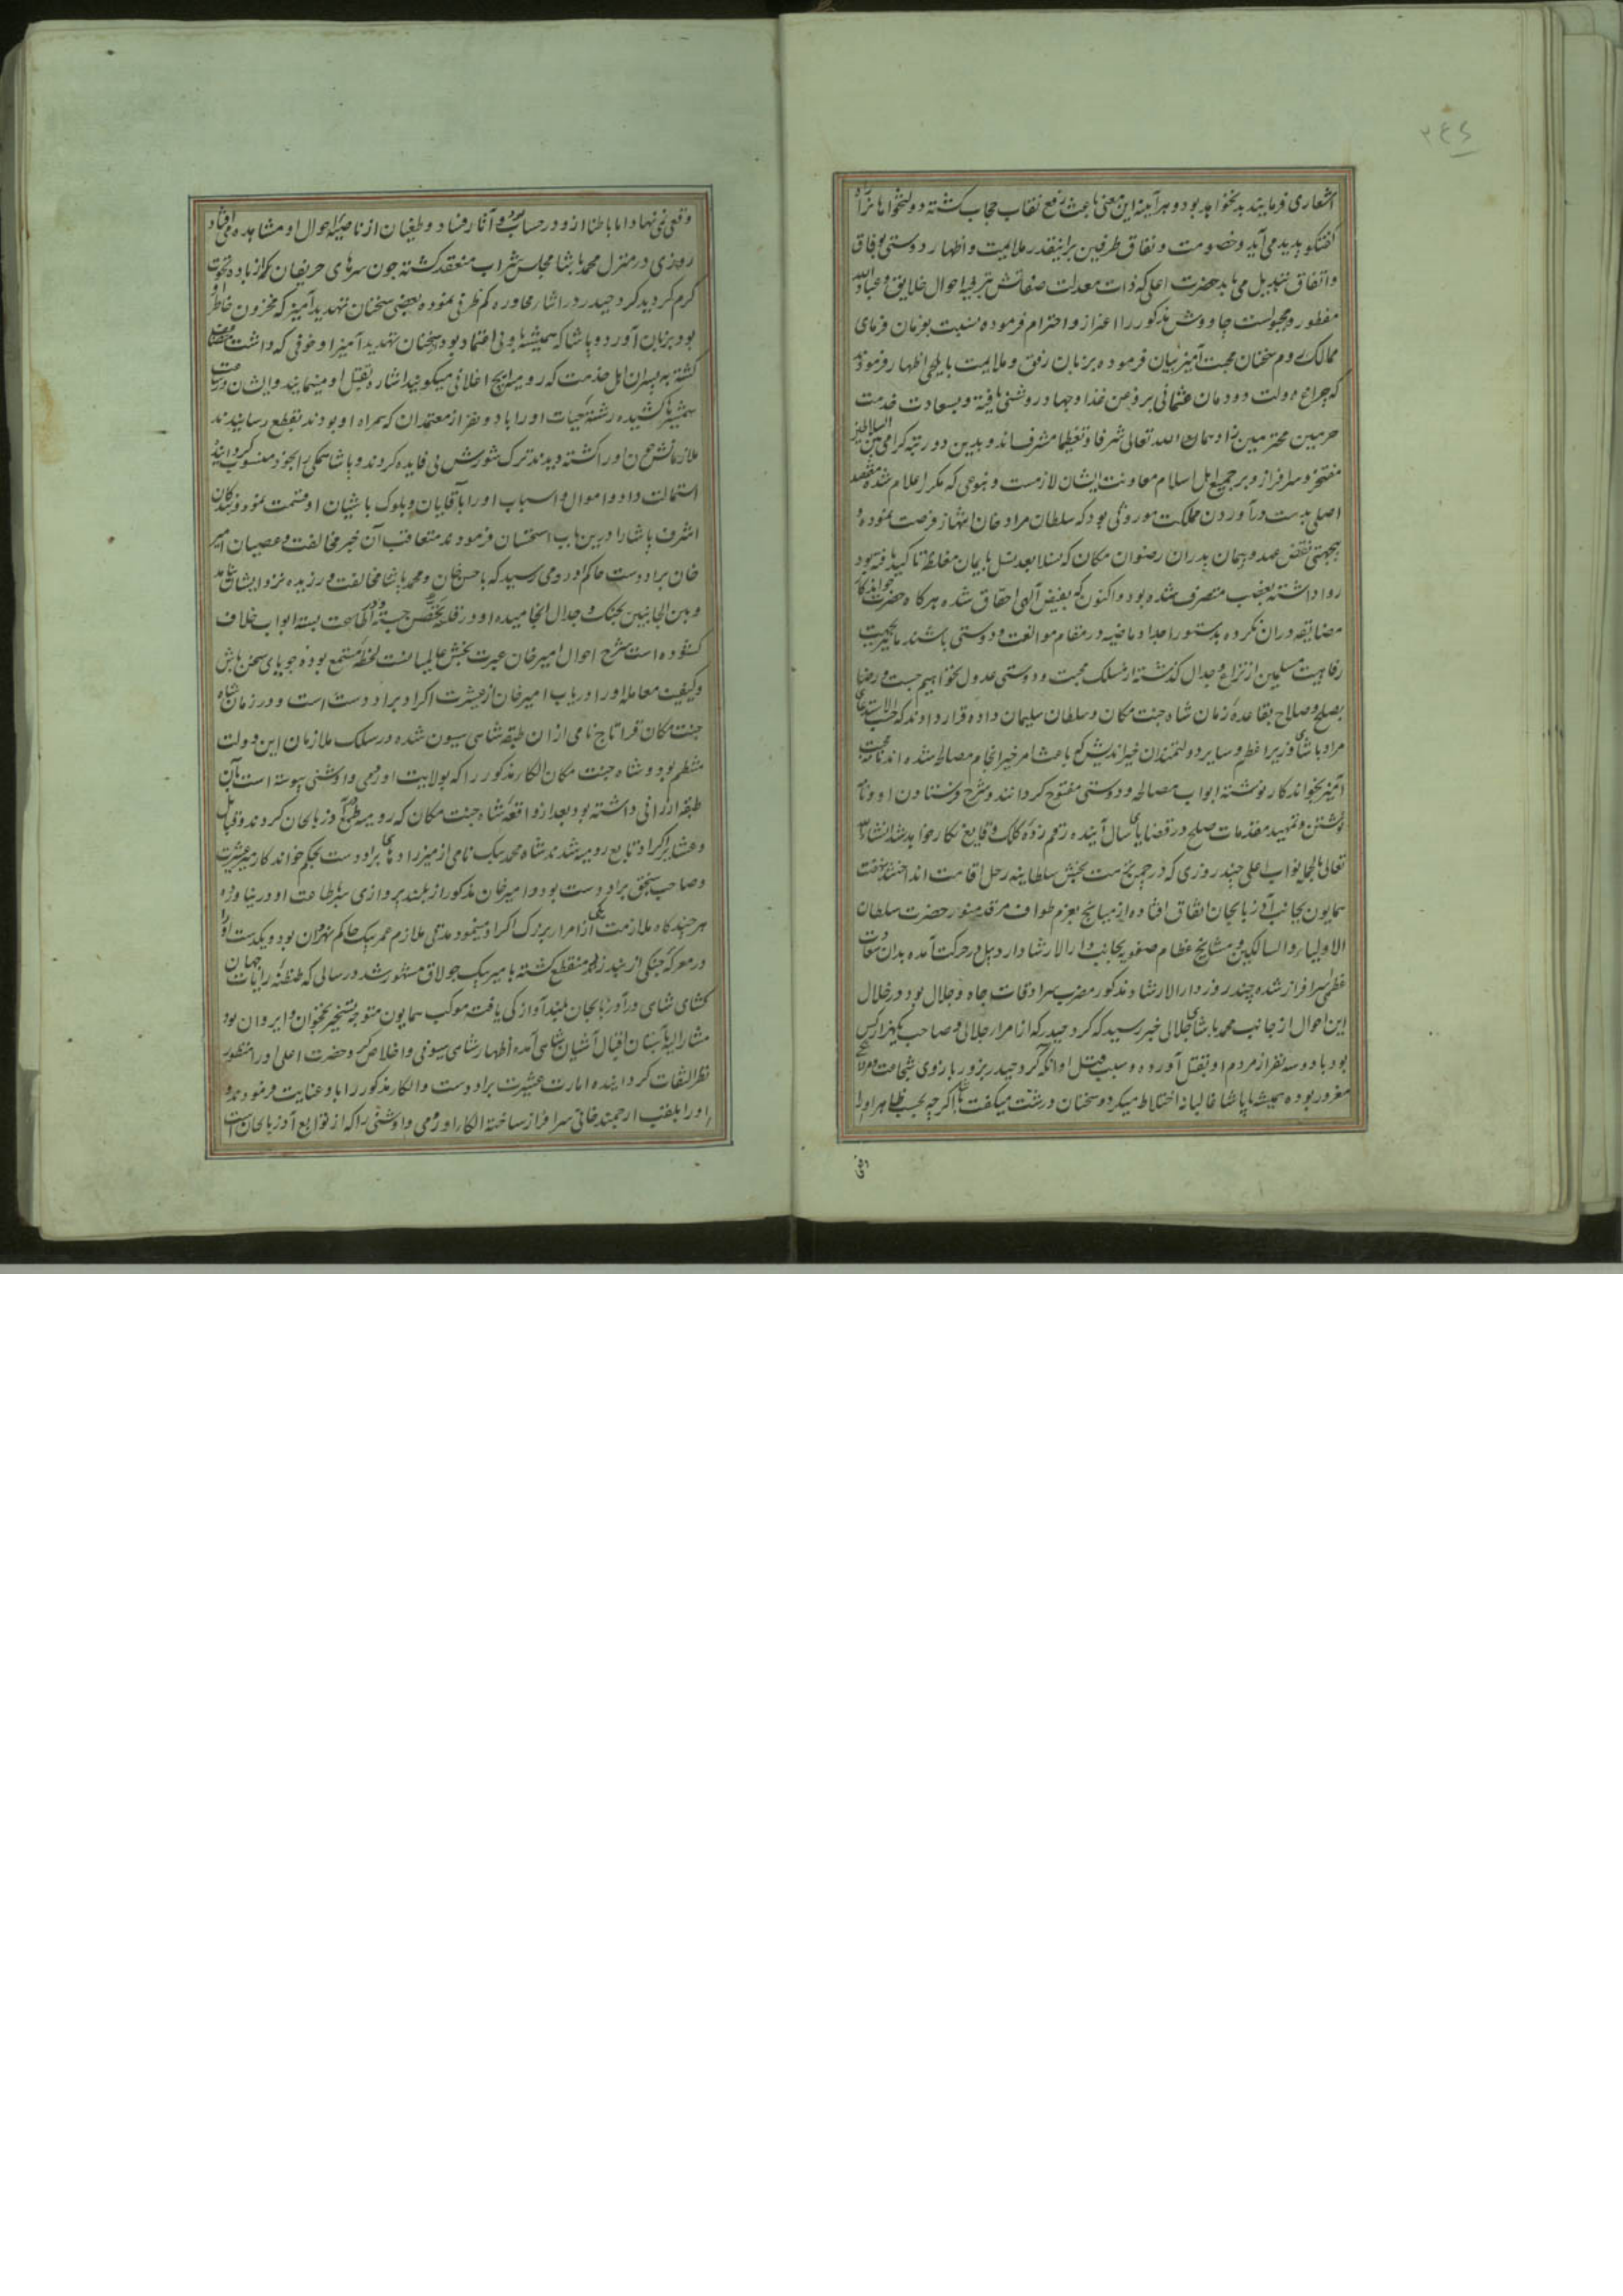 ۳۴۶
اشعاری فرمایند بد نخواهد بود و هر آینه این معنی باعث رفع نقاب حجاب کشته دولتخواهانرا
کفتکو پدید می آید و خصومت و نفاق طرفین برانیقدر ملایمت و اظهار دوستی بوفاق
و اتفاق تبدیل می یابد حضرت اعلی که ذات معدلت صفاتش بترفیه احوال خلایق و عباد الله
مفطور و مجبولست چاووش مذکور را اعزاز و احترام فرموده نسبت بفرمان فرمای
ممالک روم سخنان محبت آمیز بیان فرموده بزبان رفق و ملایمت بایلچی اظهار فرمودند
که چراغ دولت دودمان عثمانی بروغن غذا و جهاد روشنی یافته و بسعادت خدمت
حرمین محترمین زادهمان الله تعالی شرفا و تعظیما مشرف اند و بدین دو رتبه کرامی بین السلاطین
مفتخر و سرافراز و بر جمیع اهل اسلام معاونت ایشان لازمست و بنوعی که مکرر اعلام شده مقصد
اصلی بدست درآوردن مملکت موروثی بود که سلطان مراد خان انتهاز فرصت نموده و
بیجهتی نقض عهد و پیمان پدران رضوان مکان که نسلا بعد نسل بایمان مغلظه تاکید یافته بود
روا داشته بغضب متصرف شده بود و اکنون که بفیض آلهی احقاق شده هرکاه حضرت خواندکار
مضایقه دران نکرده بدستور اجداد ماضیه در مقام موالفت و دوستی باشند ما نیز بجهت
رفاهیت مسلمین از نزاع و جدال کذشته از مسلک محبت و دوستی عدول نخواهیم جست و رضا
بصلح و صلاح بقاعده زمان شاه جنت مکان و سلطان سلیمان داده قرار دادند که حسب الاستدعای
مراد پاشای وزیر اعظم و سایر دولتمندان خیراندیش که باعث امر خیر انجام مصالحه شده اند نامه محبت
آمیز بخواندکار نوشته ابواب مصالحه و دوستی مفتوح کردانند و شرح فرستادن او و نامه
نوشتن و تمهید مقدمات صلح در قضایای سال آینده رقم زده کلک وقایع نکار خواهد شد انشاء الله
تعالی بالجمله نواب اعلی چند روزی که در چمن نزهت بخش سلطانیه رحل اقامت انداختند نهضت
همایون بجانب آذربایجان اتفاق افتاده از میانج بعزم طواف مرقد منور حضرت سلطان
الاولیاء و السالکین و مشایخ عظام صفویه بجانب دار الارشاد اردبیل در حرکت آمده بدان سعادت
عظمی سرافراز شده چند روز دار الارشاد مذکور مضرب سرادقات جاه و جلال بود در خلال
این احوال از جانب محمد پاشای جلالی خبر رسید که کرد حیدر که از امرا جلالی و صاحب یکهزار کس
بود با دو سه نفر از مردم او بقتل آورده و سبب قتل او آنکه کرد حیدر بزور بازوی شجاعت و مردانکی
مغرور بوده همیشه با پاشا غالبانه اختلاط میکرد و سخنان درشت میکفت پاشا اکرچه بحسب ظاهر او را
وقعی
وقعی نمی نهاد اما باطنا ازو در حساب بود و آثار فساد و طغیان از ناصیه احوال او مشاهده می افتاد
روزی در منزل محمد پاشا مجلس شراب منعقد کشته چون سرهای حریفان که از باده نخوت
کرم کردید کرد حیدر در اثناء محاوره کم ظرفی نموده بعضی سخنان تهدید آمیز که مخزون خاطر او
بود بر زبان آورد و پاشا که همیشه باو بی اعتماد بود سخنان تهدید آمیز او خوفی که داشت
کشته به پسران اهل خدمت که رومیه ایچ اغلانی میکویند اشاره بقتل او مینمایند و ایشان دست
بشمشیر ها کشیده رشته حیات او را با دو نفر از معتمدان که همراه او بودند بقطع رسانیدند
ملازمانش چون او را کشته دیدند ترک شورش بی فایده کردند و پاشا همکی را بخود منسوب کردانیده
استمالت داد و اموال و اسباب او را باقایان و بلوک باشیان او قسمت نمود و بندکان
اشرف پاشا را درین باب استحسان فرمودند متعاقب آن خبر مخالفت و عصیان امیر
خان برادوست حاکم اورومی رسید که با حسن خان و محمد پاشا مخالفت ورزیده نزد ایشان نیامد
و بین الجانبین بجنک و جدال انجامیده او در قلعه تحصن جسته و در آنرا سخت بسته ابواب خلاف
کشوده است شرح احوال امیر خان عبرت بخش عالمیانست لحظه مستمع بوده جویای سخن باش
و کیفیت معامله او را دریاب امیر خان از عشیرت اکراد برادوست است و در زمان شاه
جنت مکان قرا تاج نامی از ان طبقه شاهی سیون شده در سلک ملازمان این دولت
منتظم بود و شاه جنت مکان الکاء مذکور را که بولایت اورمی و اوشنی پیوسته است بآن
طبقه ارزانی داشته بود بعد از واقعه شاه جنت مکان که رومیه طمع در آذربایجان کردند و قبایل
و عشایر اکراد تابع رومیه شدند شاه محمد بیک نامی از میرزادهای برادوست بحکم خواندکار میر عشیرت
و صاحب سنجق برادوست بود و امیر خان مذکور از بلند پروازی سر باطاعت او در نیاورده
هر چند کاه ملازمت یکی از امراء بزرک اکراد مینمود مدتی ملازم عمر بیک حاکم سهران بود و یکدست او را
در معرکه جنکی از بند زند منقطع کشته بامیر بیک چولاق مشهور شد در سالی که طنطنه رایات جهان
کشای شاهی در آذربایجان بلند آوازکی یافت موکب همایون متوجه تسخیر نخجوان و ایروان بود
مشارالیه بآستان اقبال آشیان شاهی آمده اظهار شاهی سیونی و اخلاص کرد حضرت اعلی او را منظور
نظر التفات کردانیده امارت عشیرت برادوست و الکاء مذکور را باو عنایت فرمودند و
او را بلقب ارجمند خانی سرافراز ساخته الکاء اورومی و اوشنی را که از توابع آذربایجان است